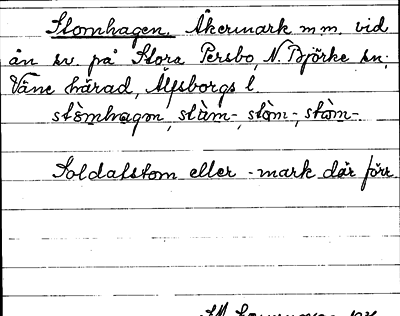 Stomhagen. Åkermark m m. vid
ån sv. på Stora Persbo, N. Björke sn;
Väne härad, Älfsborgs l.
stòmhagən, stàm-, stòm-, stòm-.
Soldatstom eller -mark där förr.